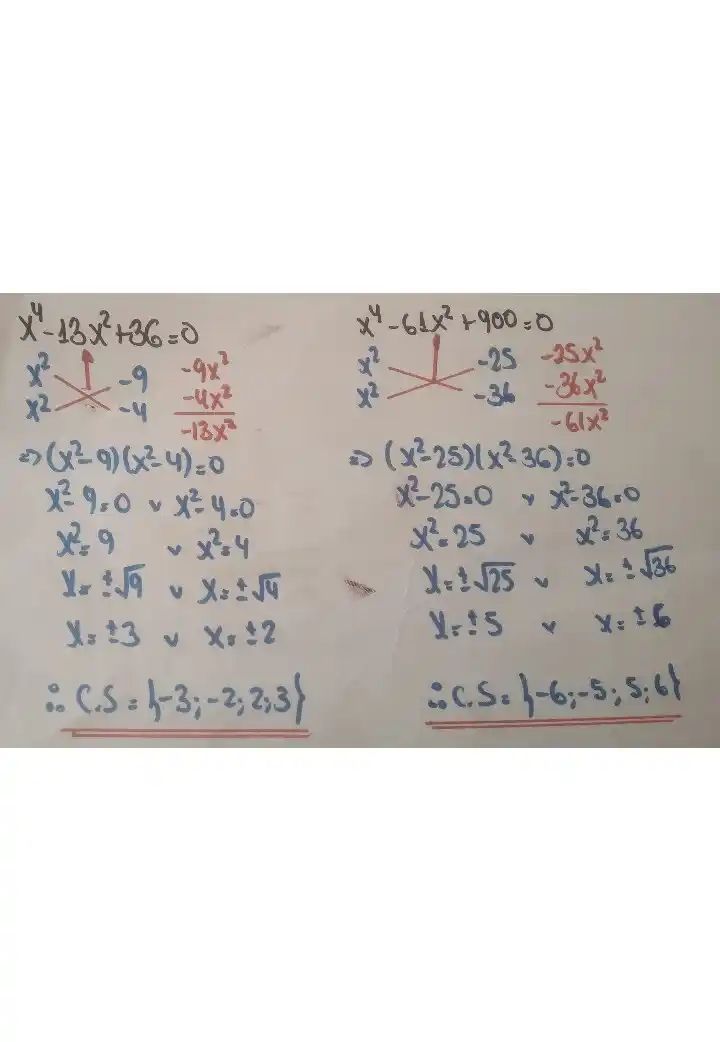 x⁴-13x²+36=0
x² -9 -9x²
x² -4 -4x²
-13x²
=> (x²-9)(x²-4)=0
x²-9=0 v x²-4=0
x²=9 v x²=4
x=±√9 v x=±√4
x=±3 v x=±2
∴ C.S = {-3;-2;2;3}
x⁴-61x²+900=0
x² -25 -25x²
x² -36 -36x²
-61x²
=> (x²-25)(x²-36)=0
x²-25=0 v x²-36=0
x²=25 v x²=36
x=±√25 v x=±√36
x=±5 v x=±6
∴ C.S = {-6;-5;5;6}